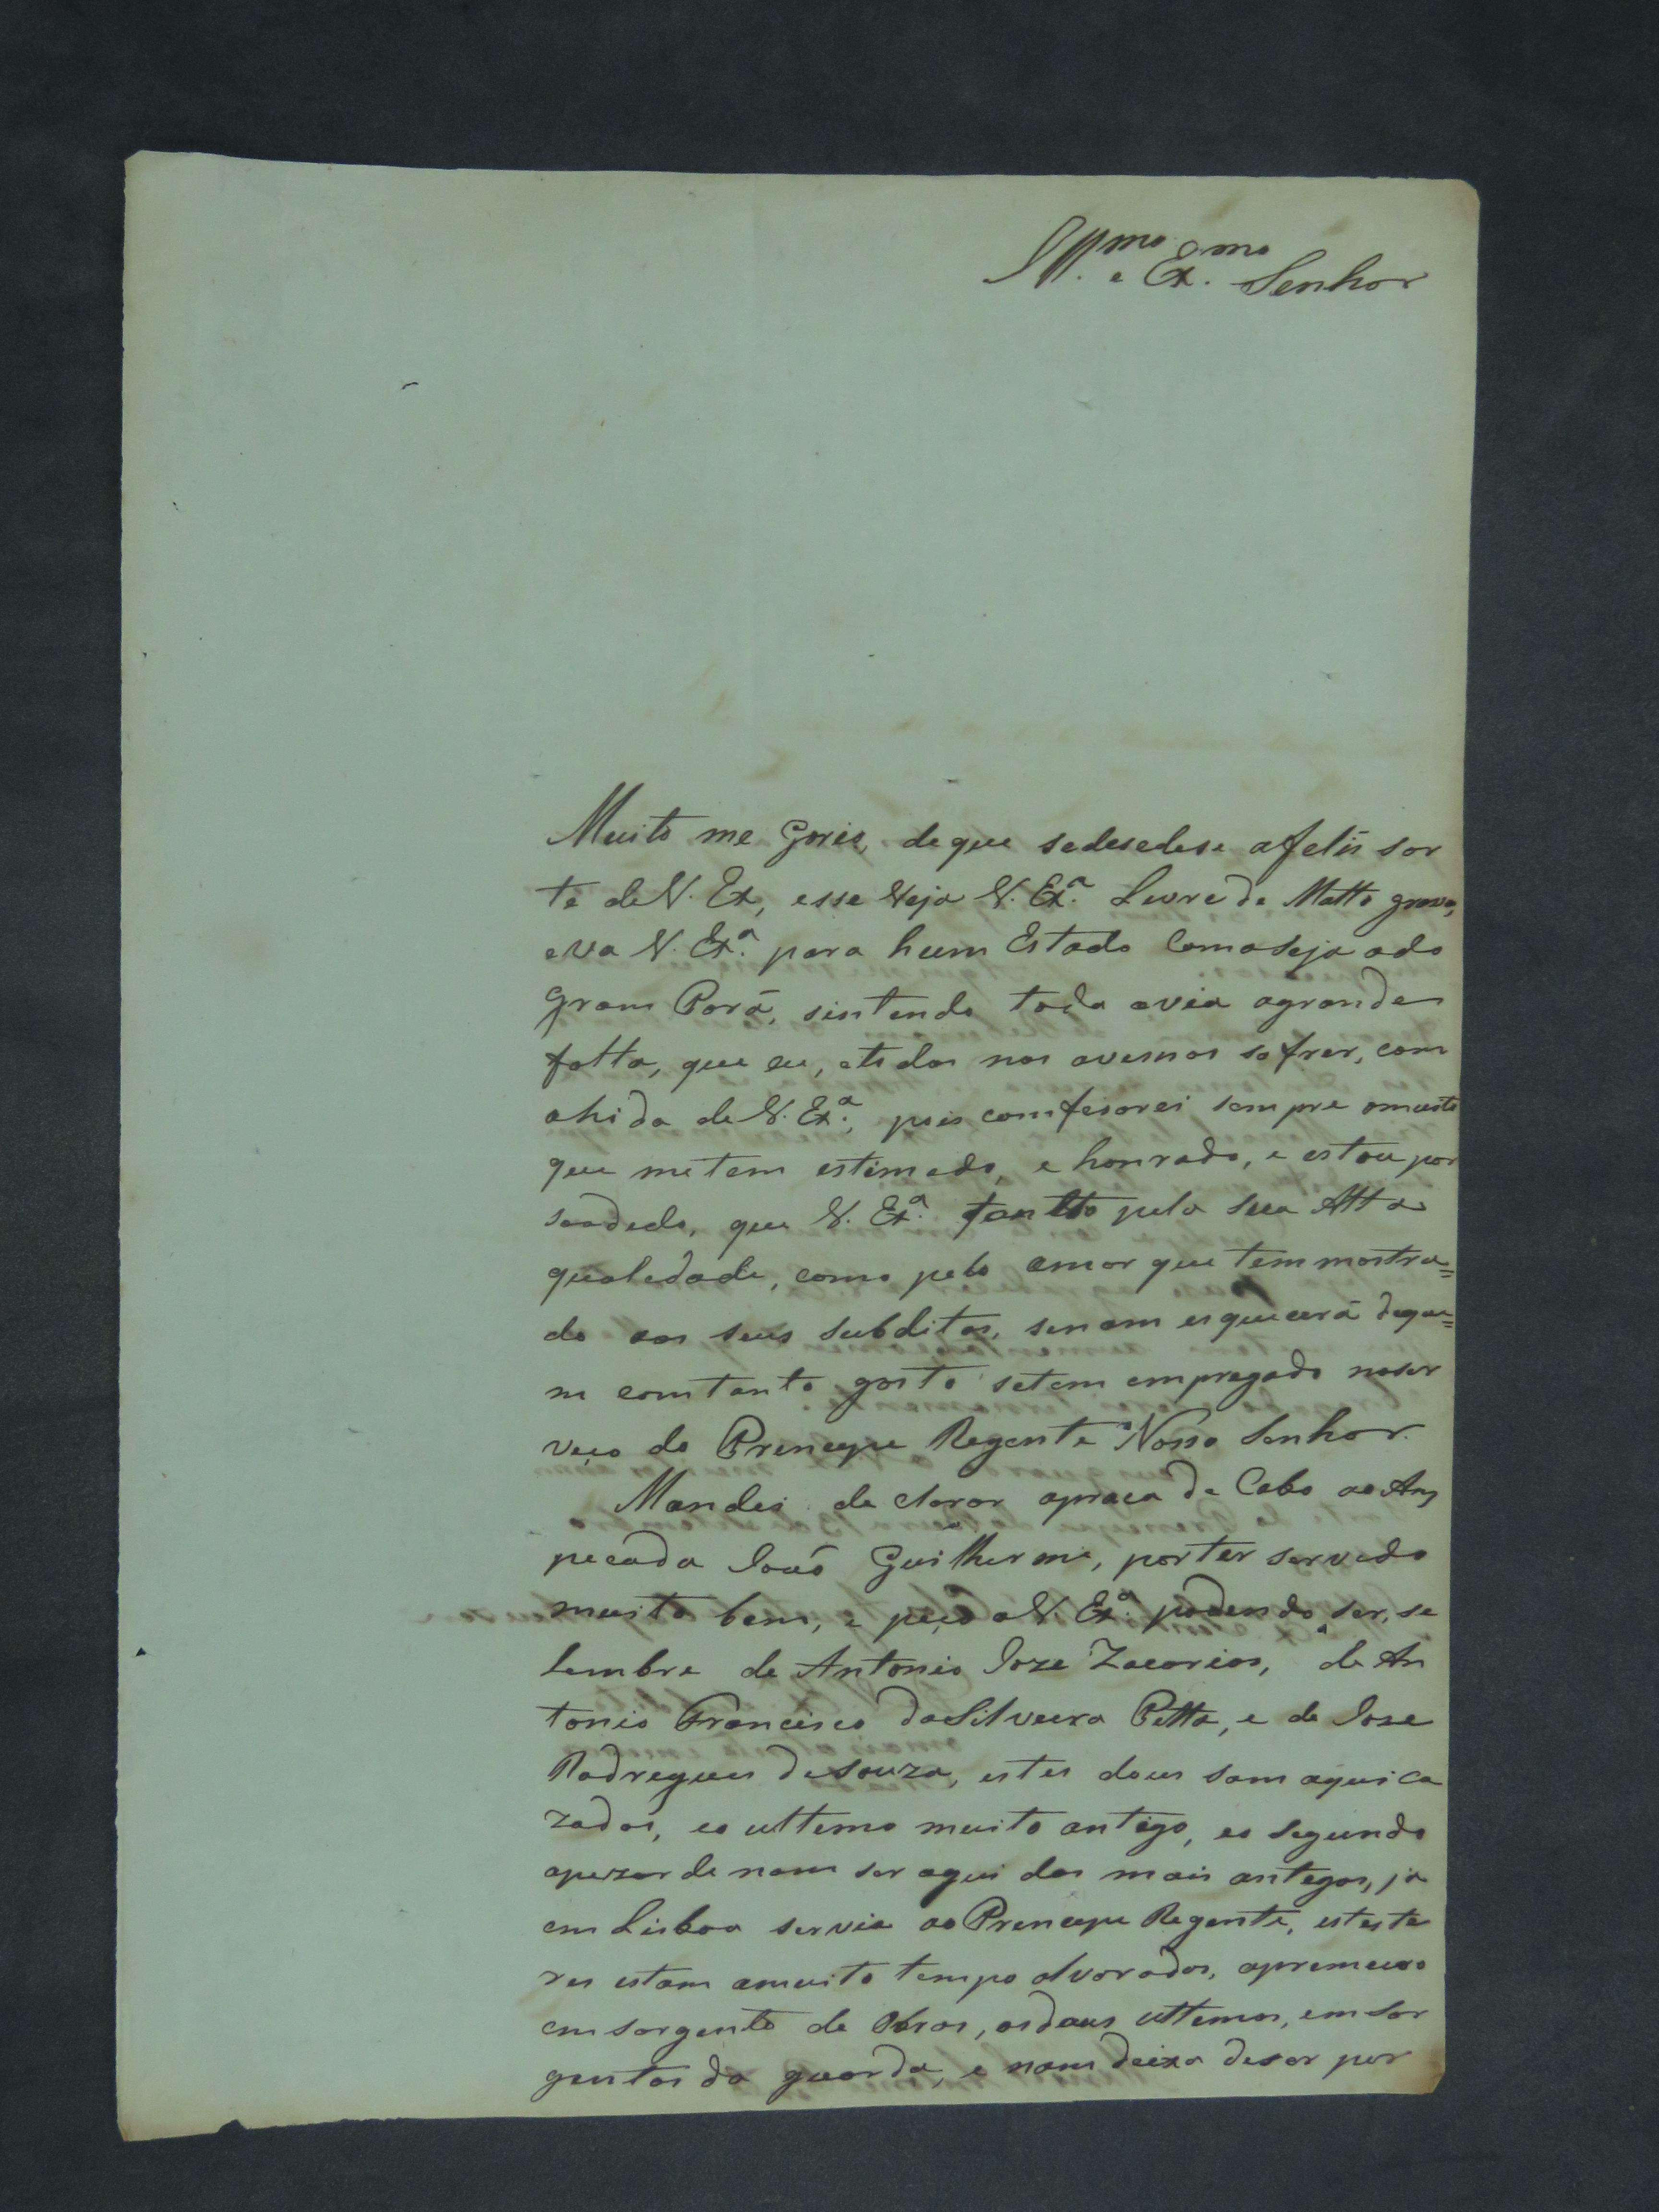 Ill.mo e Ex.mo Senhor
Muito me de que sedesedese afelis sor
te de V. Ex, esse Veja V. Ex.a Livre de Matto groso,
eva V. Ex.a para hum Estado Comoseja odo
Gram Pará, sintendo toda avia agrande
falta, que eu, etodos nos avemos sofrer, com
ahida de V. Ex.a, pois comfesarei sempre omuito
que metem estimado, e honrado, e estou per
soadido, que V. Ex.a tantto pela sua Alta
qualedade, como pelo amor que tem mostra=
do aos seus subditos, senam esquecerá dequ=
em comtanto gosto setem empregado noser
veço do Prencepe Regente Nosso Senhor.
Mandei de clarar apraca de Cabo ao Ans
pecada Joaó Guilherme, porter servedo
muito bem, e peço a V. Ex.a podendo ser, se
lembre de Antonio Joze Zacarias, de An
tonio Francisco daSilveira Petta, e de Jose
Rodregues deSouza, estes dous sam aqui ca
zados, eo ultemo muito antigo, eo segundo
apezar de nam ser aqui dos mais antegos, ja
em Lisboa servia ao Prencepe Regente, estestr
res estam amuito tempo alvorados, opremeiro
em sargento de Obras, osdous ultemos, em Sar
gentos da guarda, e nam deixa deser per